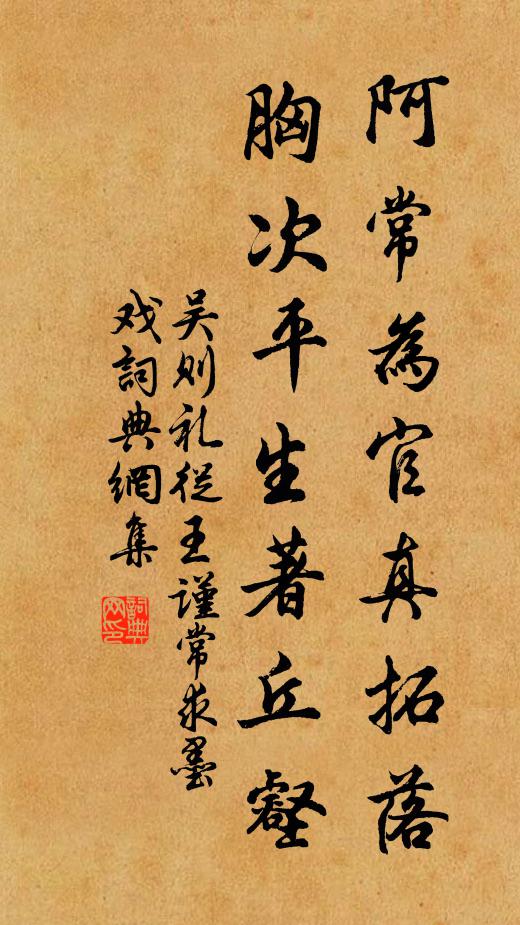 阿常為官真拓落
胸次平生著丘壑
吴则礼從王謹常求墨
戏詞典網集
詞典
网印